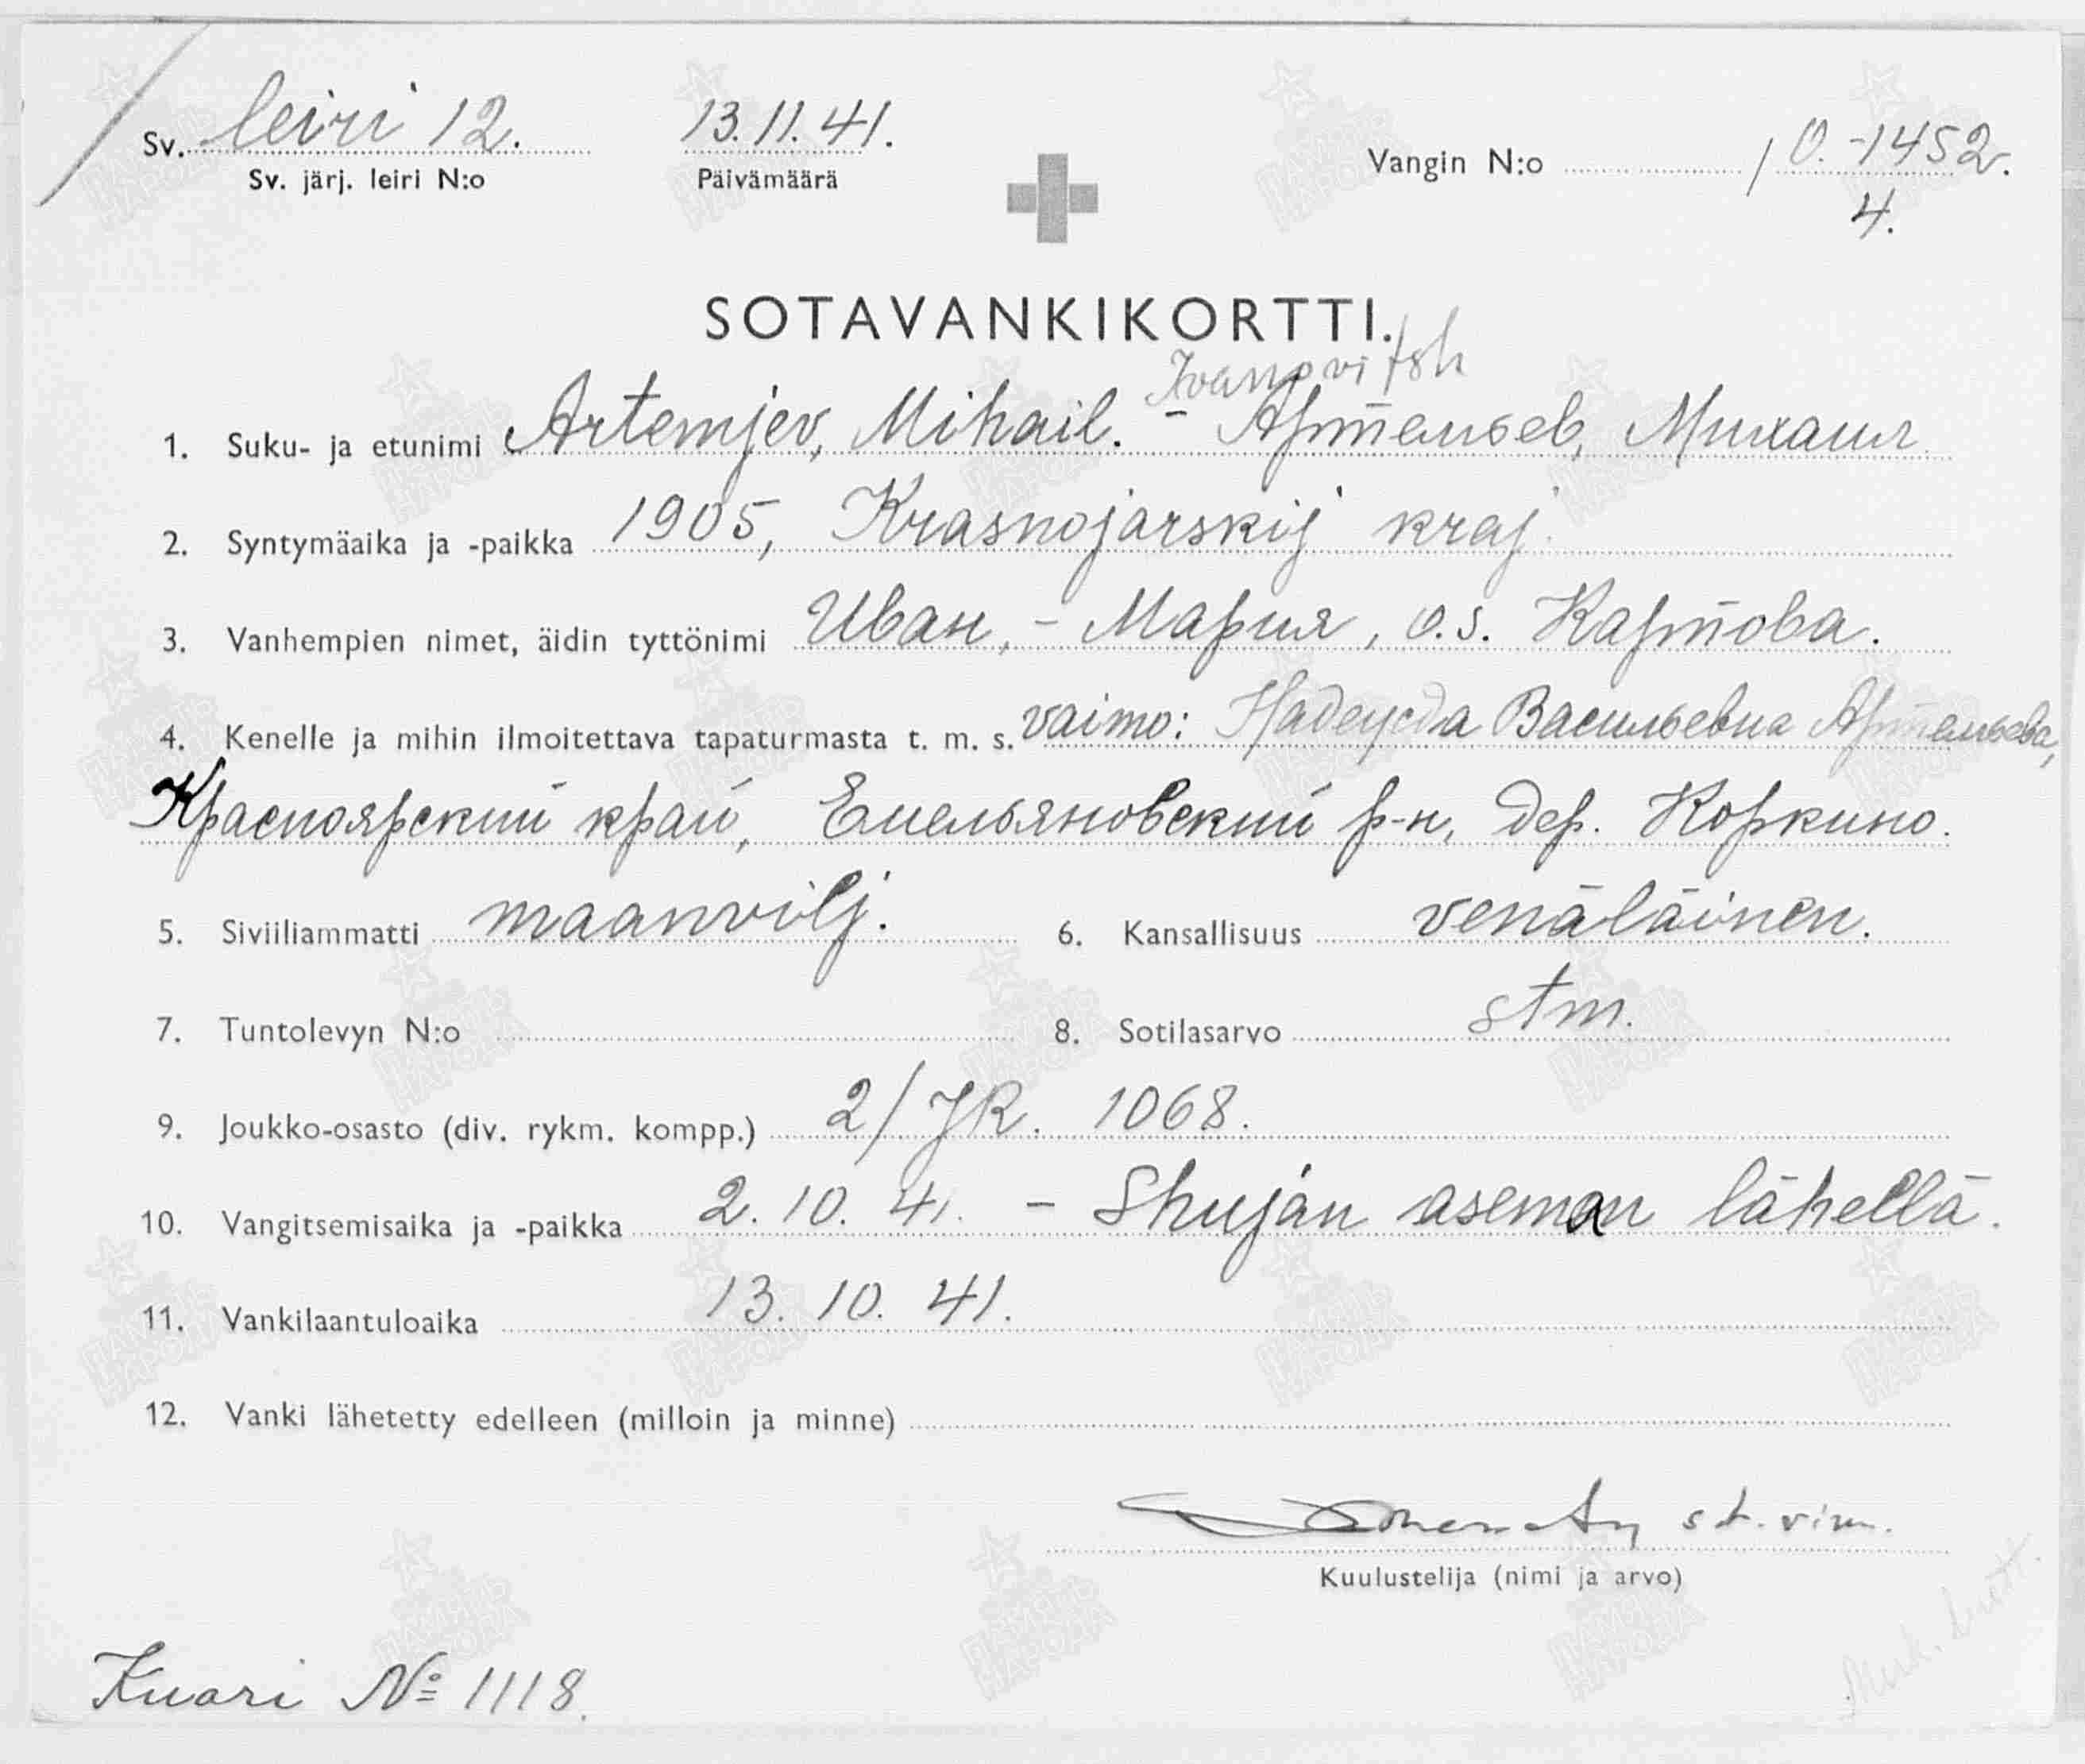 Sv. leiri 12. 13.11.41.
Sv. järj. leiri N:o Päivämäärä Vangin N:o / O.-1452.
4.
SOTAVANKIKORTTI.
Ivanovitsh
1. Suku- ja etunimi Artemjev, Mihail. - Артемьев, Михаил
2. Syntymäaika ja -paikka 1905, Krasnojarskij kraj.
3. Vanhempien nimet, äidin tyttönimi Иван, - Мария, o.s. Карпова.
4. Kenelle ja mihin ilmoitettava tapaturmasta t. m. s. vaimo: Надежда Васильевна Артемьева,
Красноярский край, Емельяновский р-н, дер. Коркино.
5. Siviiliammatti maanvilj. 6. Kansallisuus venäläinen.
7. Tuntolevyn N:o 8. Sotilasarvo stm.
9. Joukko-osasto (div. rykm. kompp.) 2/JR. 1068.
10. Vangitsemisaika ja -paikka 2.10.41. - Shujan aseman lähellä.
11. Vankilaantuloaika 13.10.41.
12. Vanki lähetetty edelleen (milloin ja minne)
Kuulustelija (nimi ja arvo)
Kuori № 1118.
ПАМЯТЬ НАРОДА